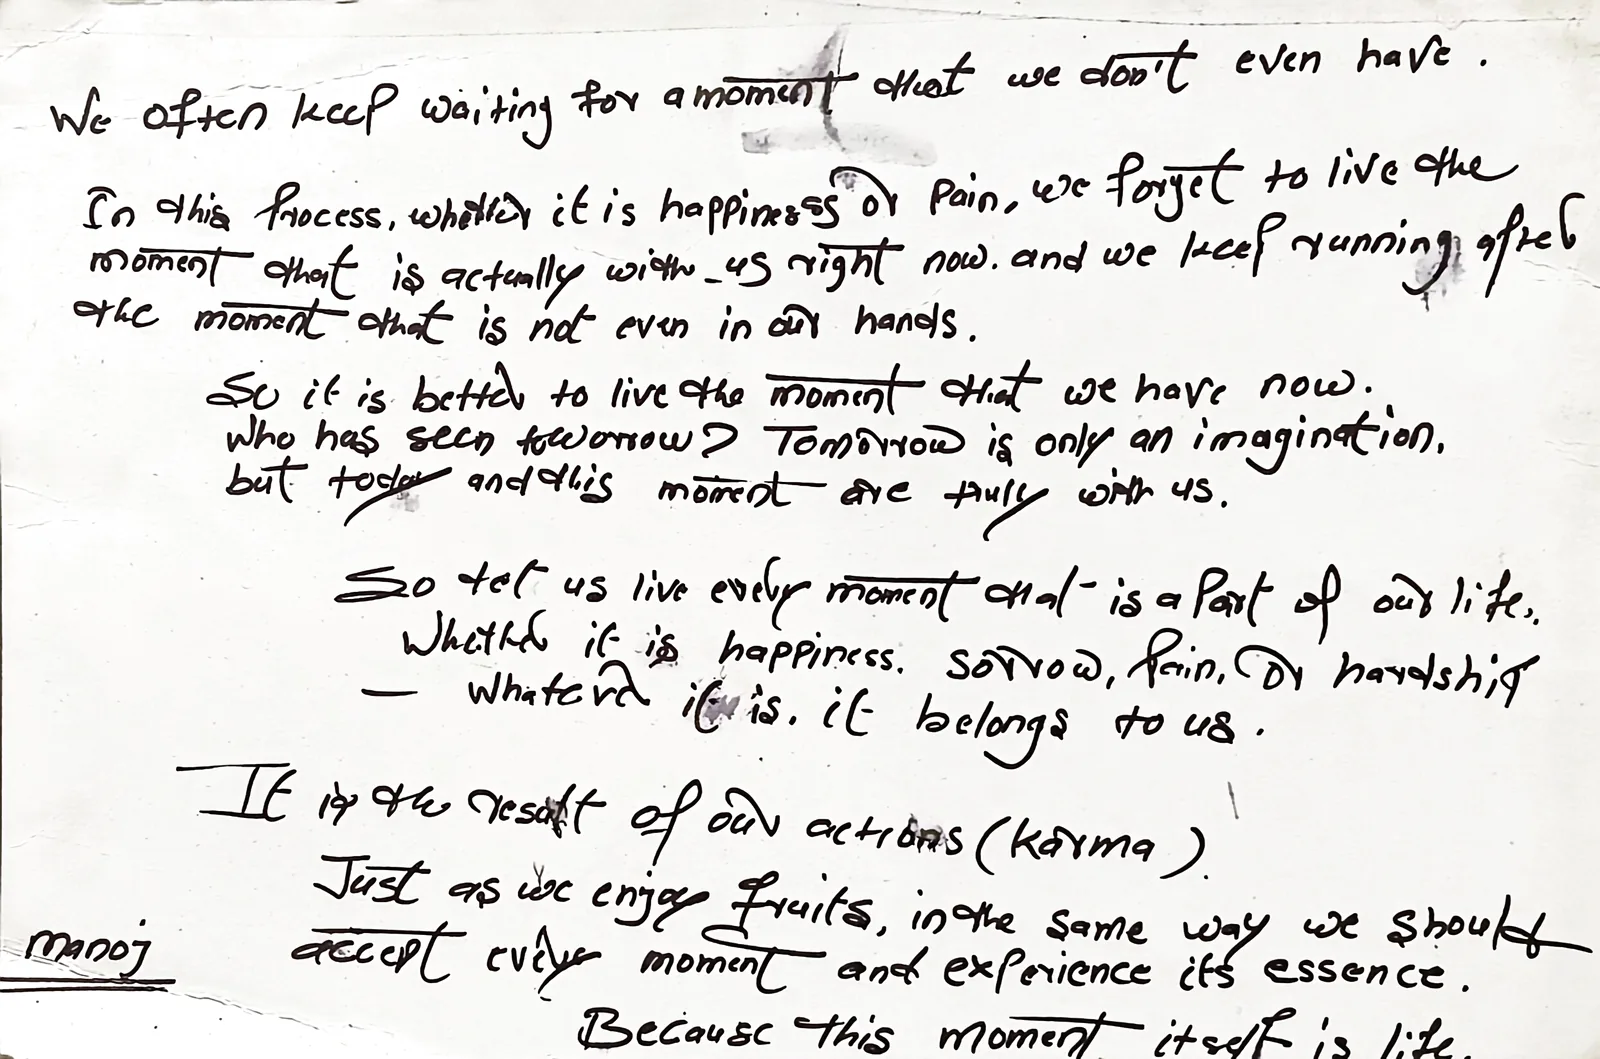 We often keep waiting for a moment that we don't even have.
In this process, whether it is happiness or pain, we forget to live the
moment that is actually with us right now. and we keep running after
the moment that is not even in our hands.
So it is better to live the moment that we have now.
Who has seen towrrow? Tomorrow is only an imagination,
but today and this moment are truly with us.
So let us live every moment that is a part of our life.
Whether it is happiness. sorrow, pain, or hardship
— whatever it is. it belongs to us.
It is the result of our actions (karma)
Just as we enjoy fruits, in the same way we should
manoj accept every moment and experience its essence.
Because this moment itself is life.